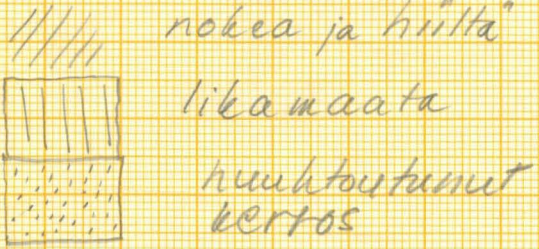 nokea ja hiiltä
likamaata
huuhtoutunut
kerros